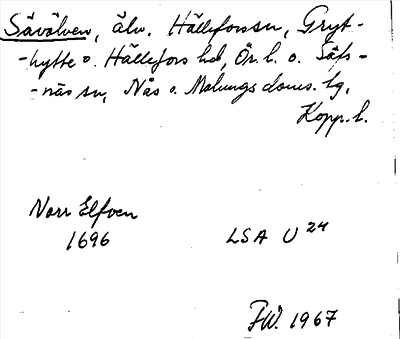 Sävälven, älv. Hällefors sn, Gryt-
-hytte o. Hällefors hd, Ör. l. o. Säfs-
-näs sn, Nås o. Malungs doms. lg,
Kopp. l.
Norr Elfven
1696
LSA U 24
F.W. 1967